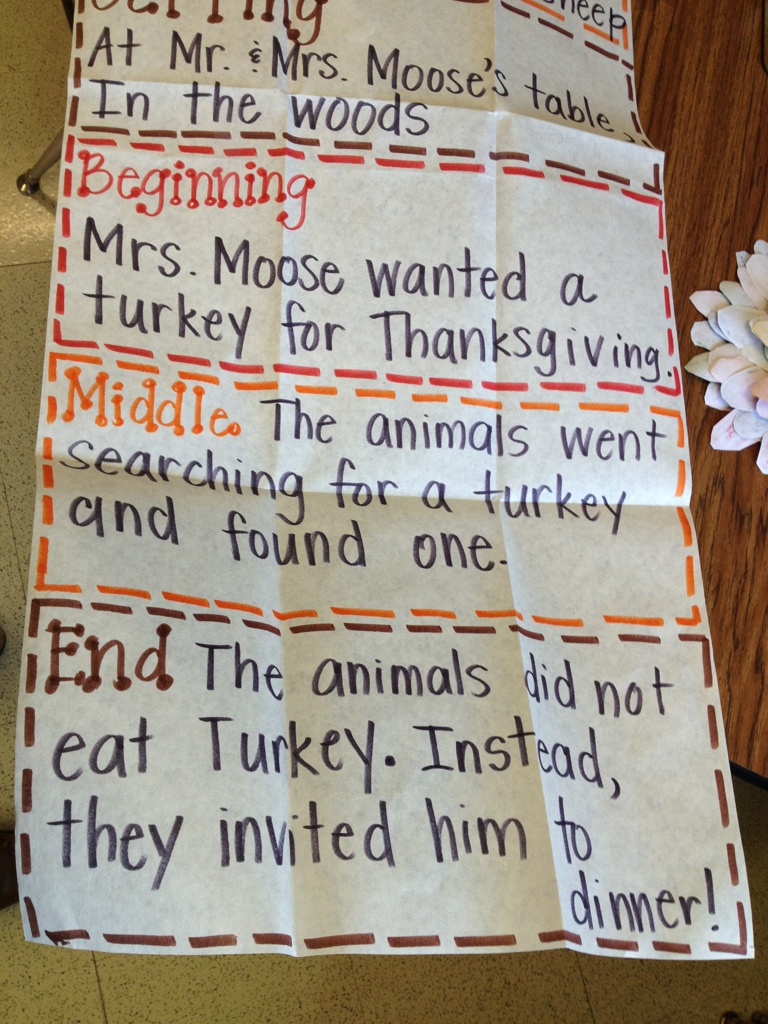 Setting
sheep
At Mr. & Mrs. Moose's table,
In the woods
Beginning
Mrs. Moose wanted a
turkey for Thanksgiving.
Middle The animals went
searching for a turkey
and found one.
End The animals did not
eat Turkey. Instead,
they invited him to
dinner!